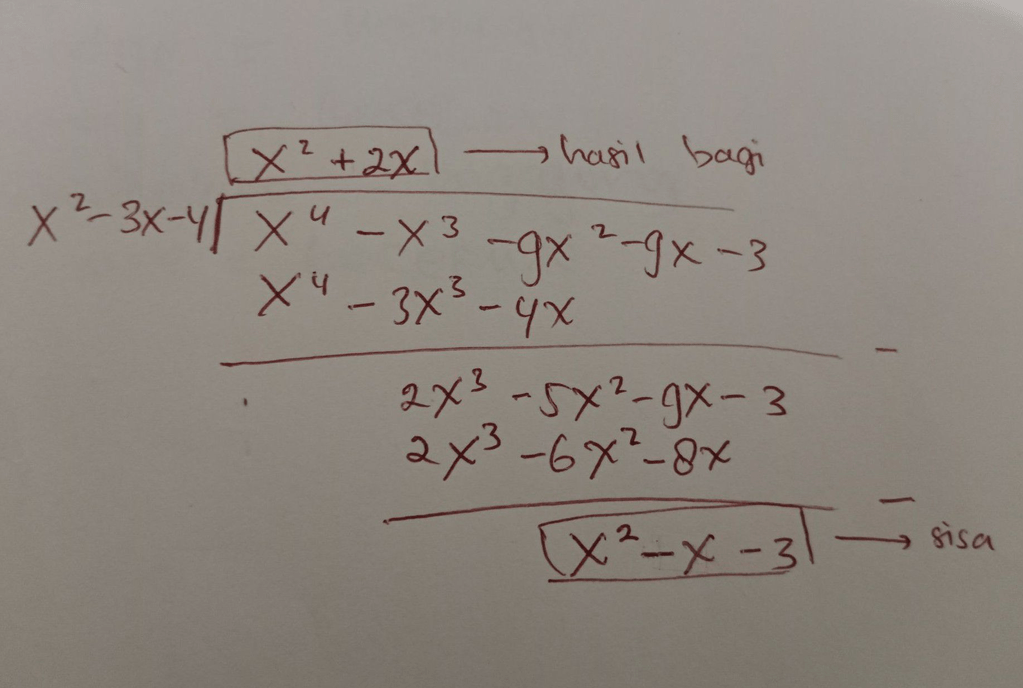 x² + 2x → hasil bagi
x² - 3x - 4 x⁴ - x³ - 9x² - 9x - 3
x⁴ - 3x³ - 4x
-
2x³ - 5x² - 9x - 3
2x³ - 6x² - 8x
-
x² - x - 3 → sisa